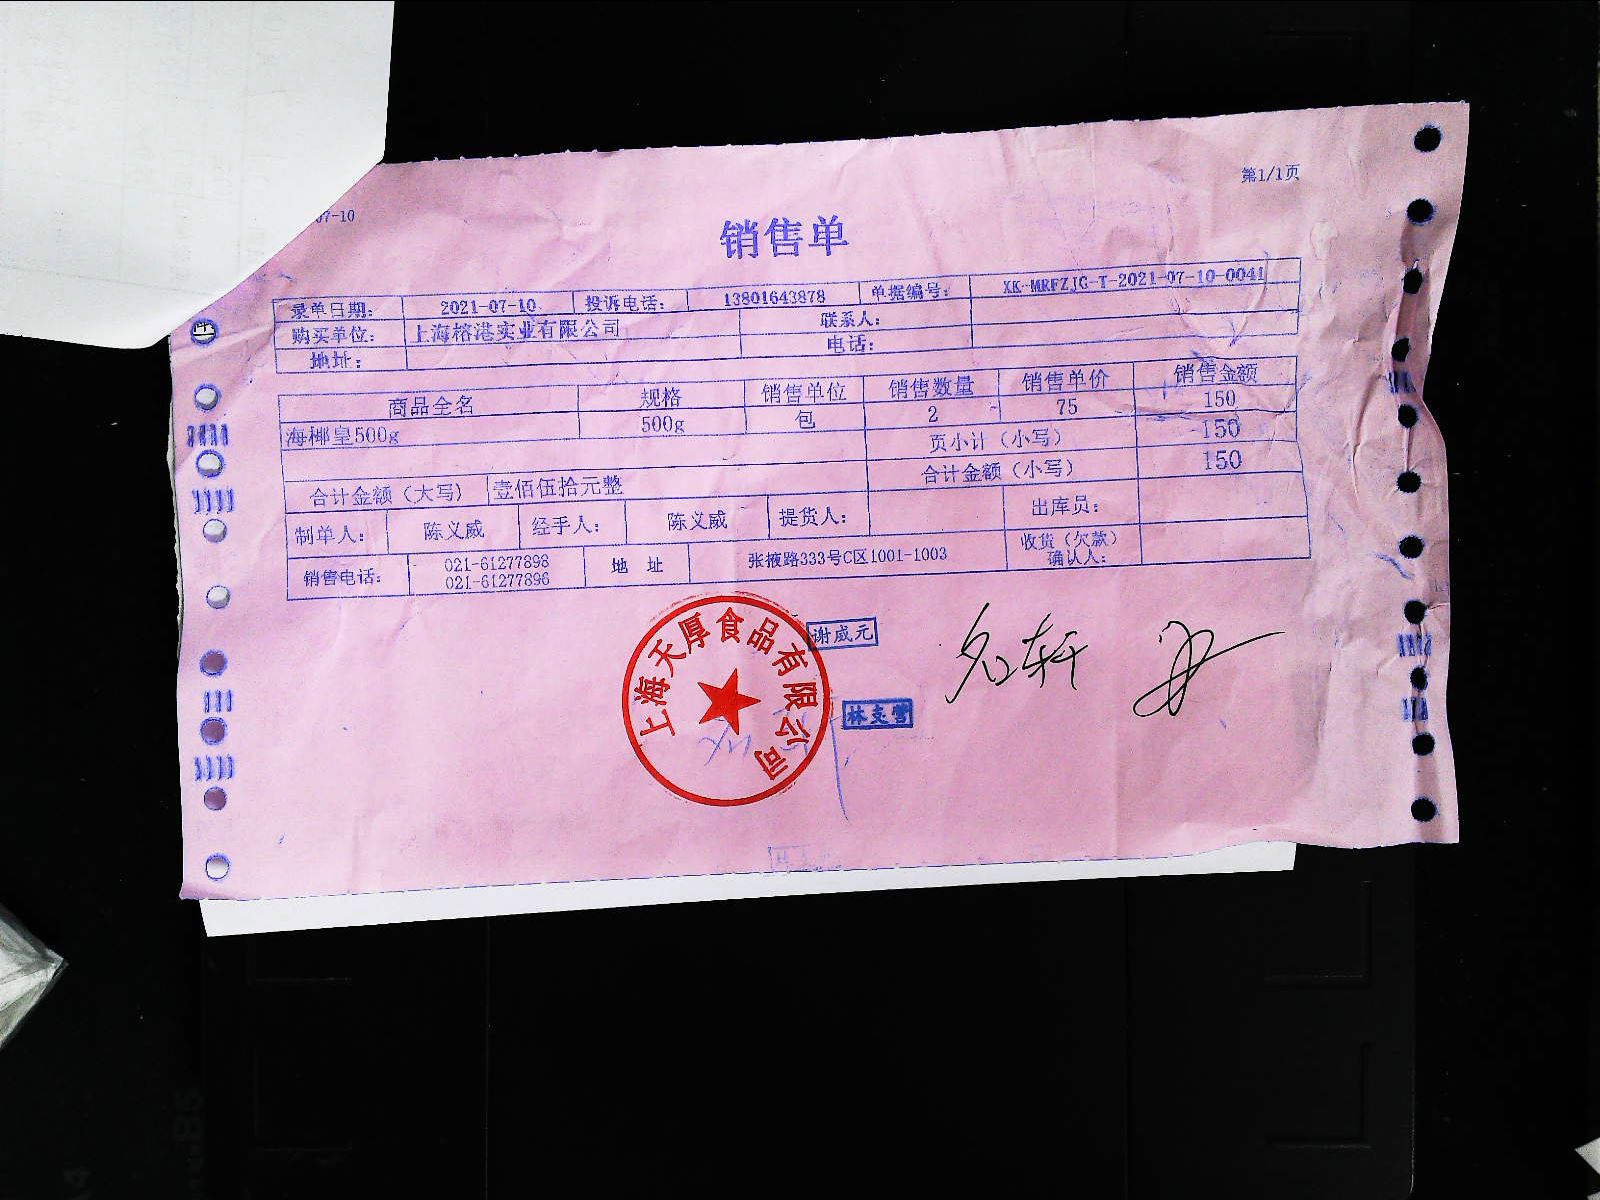 第1/1页
07-10
销售单
录单日期： 2021-07-10 投诉电话： 13801643878 单据编号： XK-MRFZJG-T-2021-07-10-0041
购买单位： 上海榕港实业有限公司 联系人：
地址： 电话：
商品全名 规格 销售单位 销售数量 销售单价 销售金额
海椰皇500g 500g 包 2 75 150
页小计（小写） 150
合计金额（大写） 壹佰伍拾元整 合计金额（小写） 150
制单人： 陈义威 经手人： 陈义威 提货人： 出库员：
销售电话： 021-61277898 021-61277896 地 址 张掖路333号C区1001-1003 收货（欠款）确认人：
上海天厚食品有限公司
谢威元